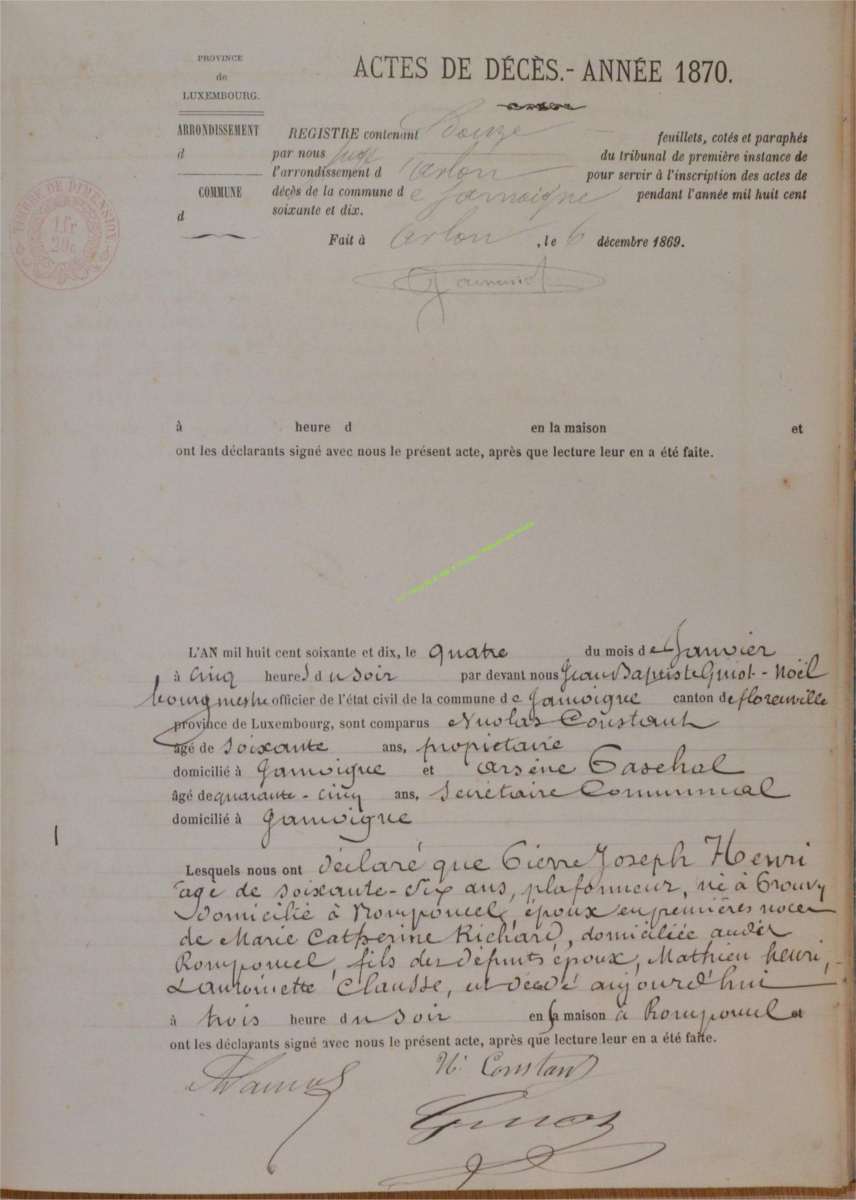 PROVINCE
de
LUXEMBOURG.
ARRONDISSEMENT
d
COMMUNE
d
TIMBRE DE DIMENSION
1 fr
20 c
ACTES DE DÉCÈS.- ANNÉE 1870.
REGISTRE contenant Douze feuillets, cotés et paraphés
par nous juge du tribunal de première instance de
l'arrondissement d'Arlon pour servir à l'inscription des actes de
décès de la commune de Jamoigne pendant l'année mil huit cent
soixante et dix.
Fait à Arlon, le 6 décembre 1869.
à heure d en la maison et
ont les déclarants signé avec nous le présent acte, après que lecture leur en a été faite.
L'AN mil huit cent soixante et dix, le quatre du mois de Janvier
à cinq heures du soir par devant nous Jean Baptiste Guiot-Noël
bourgmestre officier de l'état civil de la commune de Jamoigne canton de florenville
province de Luxembourg, sont comparus Nicolas Constant
âgé de soixante ans, propriétaire
domicilié à Jamoigne et Arsène Paschal
âgé de quarante-cinq ans, Secrétaire Communal
domicilié à Jamoigne
Lesquels nous ont déclaré que Pierre Joseph Henri
agé de soixante-dix ans, plafonneur, né à
domicilié à Romponcel, époux en premières noces
de Marie Catherine Richard, domiciliée audit
Romponcel, fils des défunts époux, Mathieu henri,
& antoinette Clausse, est décédé aujourd'hui
à trois heure du soir en sa maison à Romponcel et
ont les déclarants signé avec nous le présent acte, après que lecture leur en a été faite.
N. Constant
Guiot